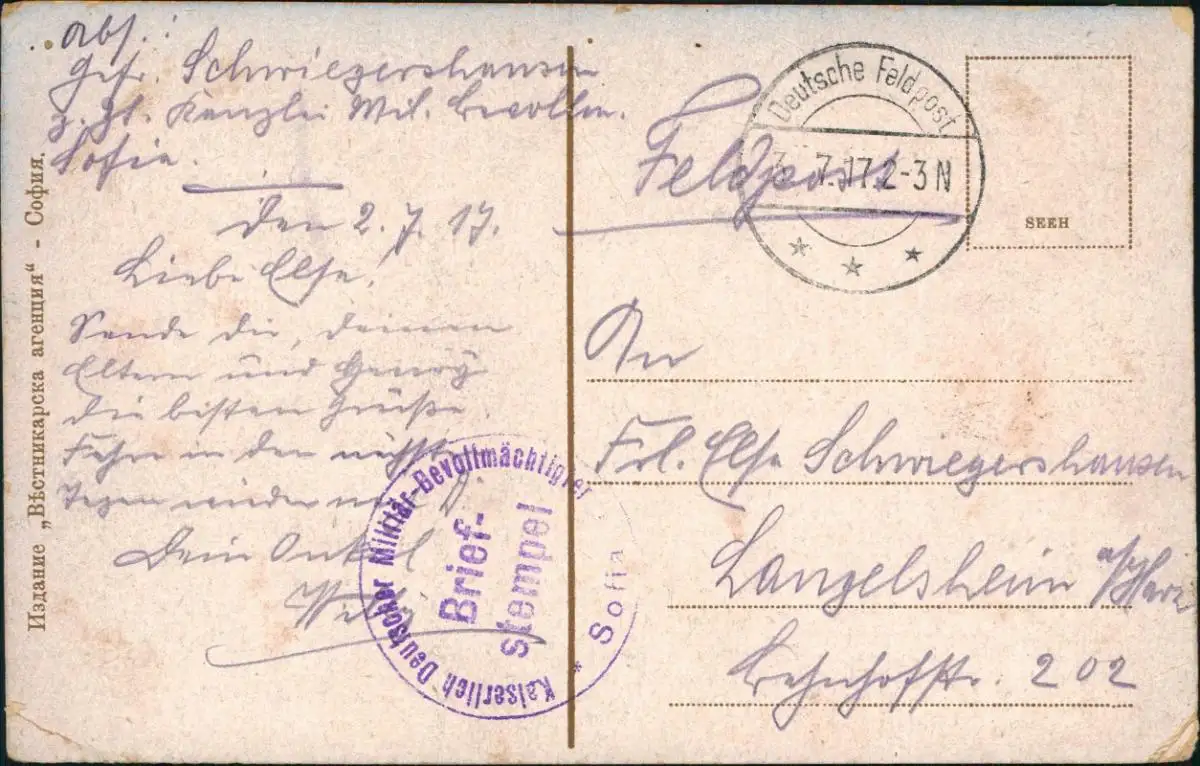 Abs.:
Gefr. Schwiegershausen
z. Zt. Kanzlei Mil. Bevollm.
Sofia.
den 2.7.17.
Liebe Else!
Sende dir, deinen
Eltern und Henry
die besten Grüße.
Fahre in den nächst
Tagen wieder
Dein Onkel
Издание „Вѣстникарска агенция“ - София.
Kaiserlich Deutscher Militär-Bevollmächtigter * Sofia
Brief-
stempel
Feldpost
Deutsche Feldpost
7.17.2-3N
* * *
SEEH
An
Frl. Else Schwiegershausen
Langelsheim a/Harz
Bahnhofstr. 202